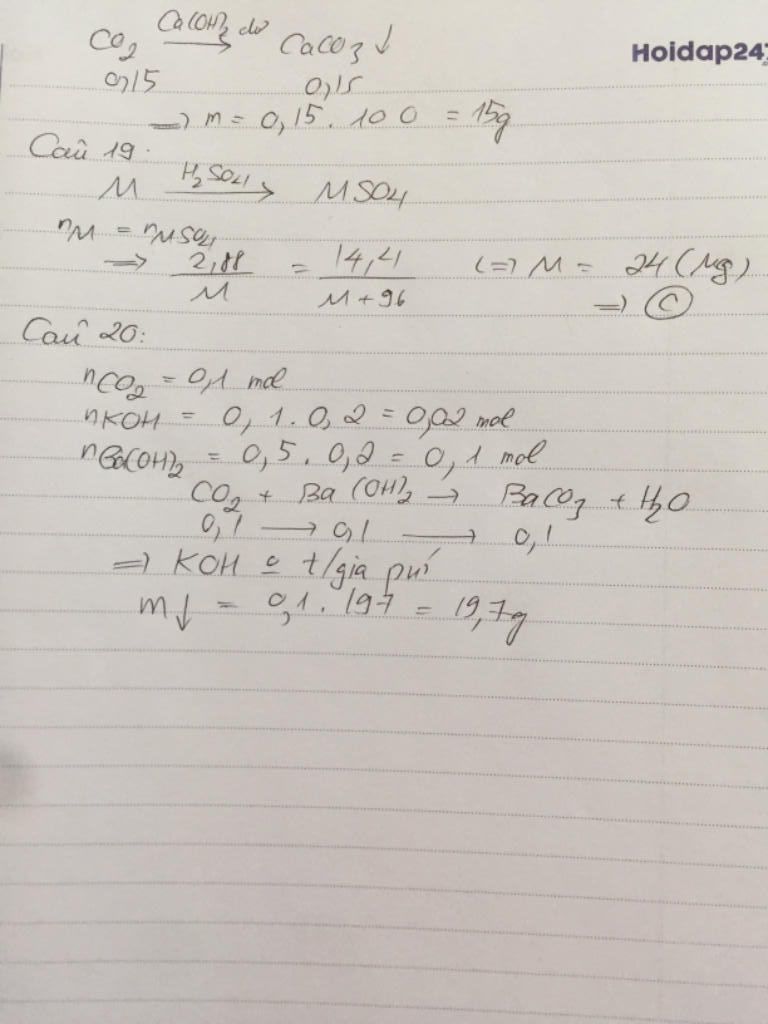 Hoidap247
CO2 —Ca(OH)2 dư→ CaCO3↓
0,15 0,15
=> m = 0,15 . 100 = 15g
Câu 19:
M —H2SO4→ MSO4
nM = nMSO4
=> 2,88/M = 14,4/M + 96 <=> M = 24 (Mg)
=> C
Câu 20:
nCO2 = 0,1 mol
nKOH = 0,1 . 0,2 = 0,02 mol
nBa(OH)2 = 0,5 . 0,2 = 0,1 mol
CO2 + Ba(OH)2 → BaCO3 + H2O
0,1 → 0,1 → 0,1
=> KOH t/gia pư
m↓ = 0,1 . 197 = 19,7g